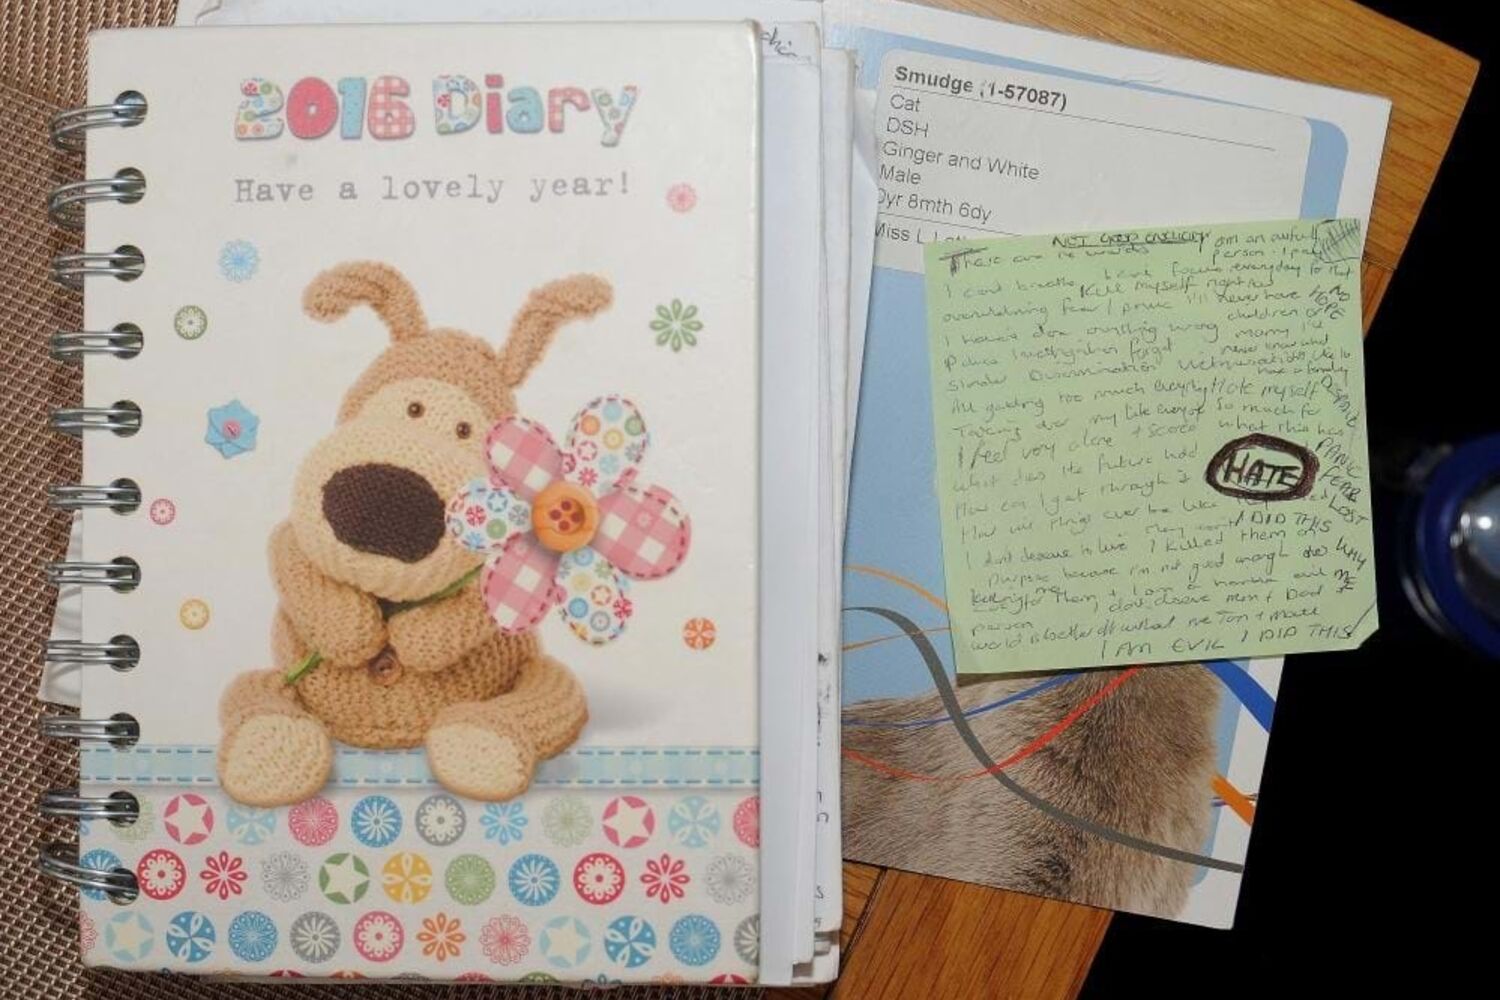 2016 Diary
Have a lovely year!
Smudge (1-57087)
Cat
DSH
Ginger and White
Male
0yr 8mth 6dy
Miss L
NOT GOOD ENOUGH
There are no words
I am an awful person
I can't breathe
Kill myself right now
overwhelming fear / panic
I'll never have children or
NO HOPE
I haven't done anything wrong
marry I'll
Police investigation forget
never know what
Slander Discrimination Victimisation
it's like to have a family
All getting too much everything
I hate myself
DESPAIR
Taking over my life everyone
so much for
I feel very alone + scared
what this has
PANIC
what does the future hold
HATE
FEAR
How can I get through it
LOST
How will things ever be like
I DID THIS
I don't deserve to live I killed them on
purpose because I'm not good enough to
WHY ME
care for them + I am a horrible evil
person I don't deserve mum + Dad
world is better off without me Tom + Matt
I AM EVIL I DID THIS